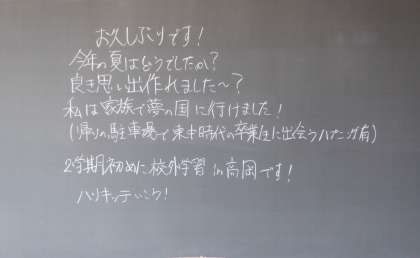 お久しぶりです!
今年の夏はどうでしたか?
良き思い出作れました〜?
私は家族で夢の国に行けました!
(帰りの駐車場で東中時代の卒業生に出会うハプニング有)
2学期初めに校外学習 in 高岡です!
ハリキッテいこう!